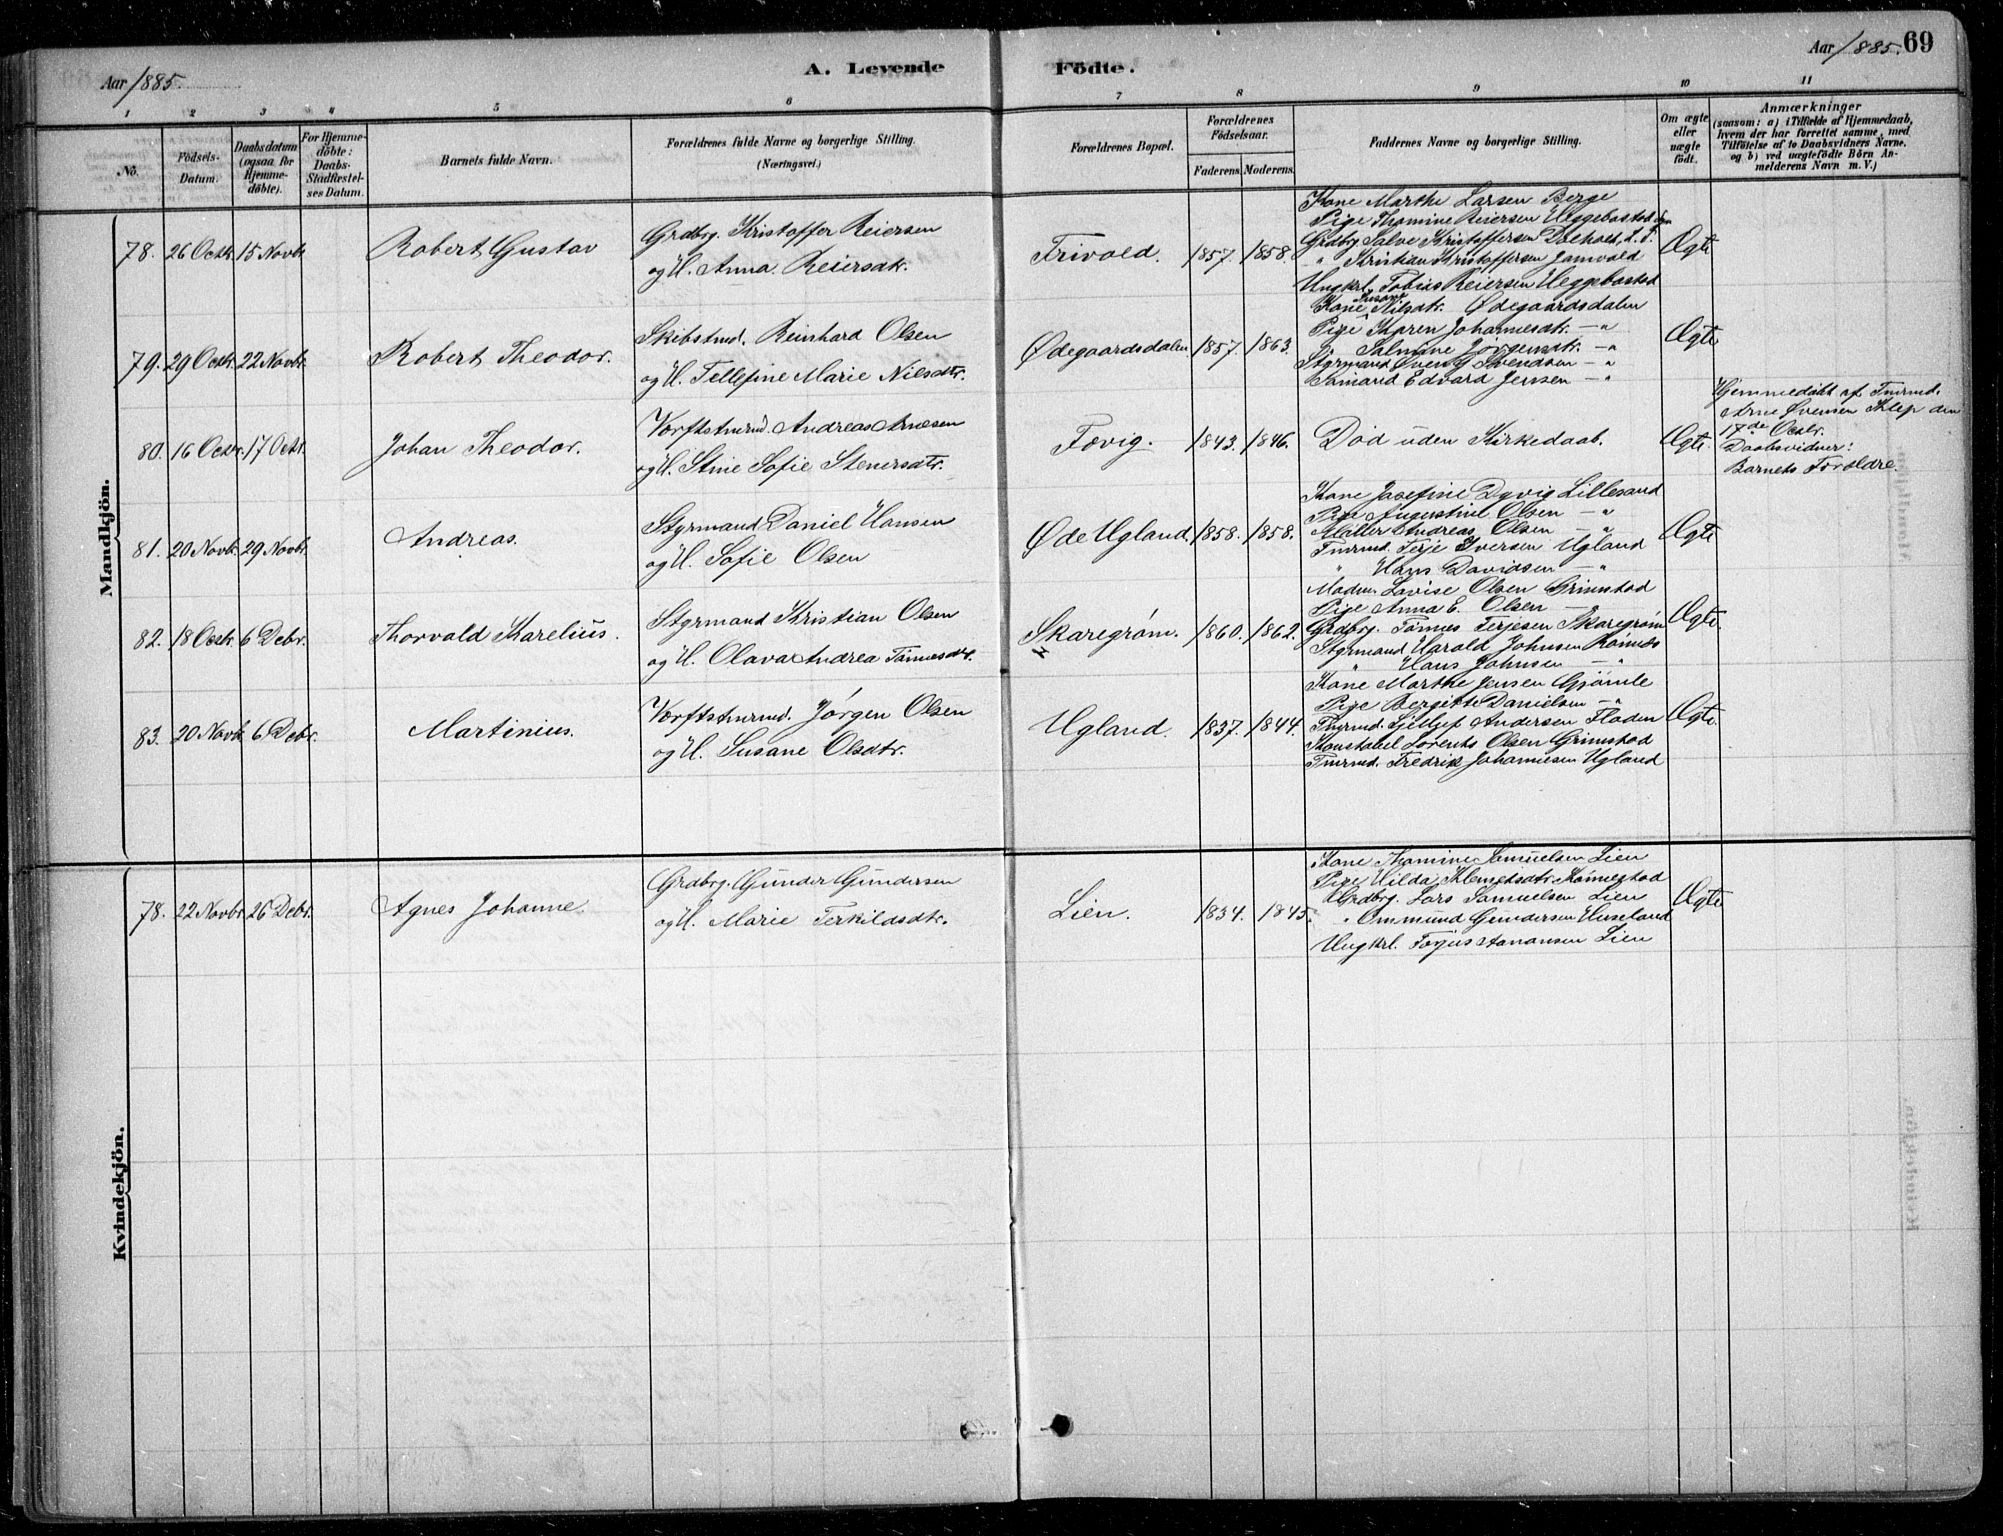 Aar 1885.
A. Levende
Födte.
Aar 1885. 69
1 2 3 4 5 6 7 8 9 10 11
No.
Födsels-Datum.
Daabsdatum (ogsaa for Hjemmedöbte).
For Hjemmedöbte: Daabs-Stadfæstelses Datum.
Barnets fulde Navn.
Forældrenes fulde Navne og borgerlige Stilling.
(Næringsvei.)
Forældrenes Bopæl.
Forældrenes Födselsaar.
Faderens. Moderens.
Faddernes Navne og borgerlige Stilling.
Om ægte eller uægte födt.
Anmærkninger
(saasom: a) i Tilfælde af Hjemmedaab, hvem der har forrettet samme, med Tilföielse af to Daabsvidners Navne, og b) ved uægtefödte Börn Anmelderens Navn m. V.)
Mandkjön.
78. 26 Octb. 15 Novb. Robert Gustav
Grdbrg. Kristoffer Reiersen
og H. Anna Reiersdtr.
Trivold. 1857. 1858.
Kone Marthe Larsen Berge
Pige Thomine Reiersen Heggebostad
Grdbrg Salve Kristoffersen
" Kristian Kristoffersen Jomvold
Ungkrl. Tobius Reiersen Heggebostad
Ægte
79. 29 Octb. 22 Novbr. Robert Theodor.
Skibstmd. Reinhard Olsen
og H. Tellefine Marie Nilsdtr.
Ødegaardsdalen 1857. 1863.
Kone Susane Nilsdtr. Ødegaardsdalen
Pige Karen Johannesdtr. — "
" Salmine Jørgensdtr. — "
Styrmand Sven G Svendsen — "
Sømand Edvard Jensen — "
Ægte
80. 16 Octbr. 17 Octb. Johan Theodor.
Værftstmrmd. Andreas Arnesen
og H. Stine Sofie Stenersdtr.
Fævig. 1843. 1846.
Död uden Kirkedaab.
Ægte.
Hjemmedöbt af Tmrmd.
Arne Ovensen Klep den
17de Octbr.
Daabsvidner:
Barnets Forældre.
81. 20 Novb. 29 Novb. Andreas.
Styrmand Daniel Hansen
og H. Sofie Olsen
Øde Ugland. 1858. 1858.
Kone Josefine Dyvig Lillesand
Pige Augustine Olsen — "
Möller Andreas Olsen — "
Tmrmd. Terje Iversen Ugland
" Hans Davidsen — "
Ægte
82. 18 Octb. 6 Debr. Thorvald Karelius.
Styrmand Kristian Olsen
og H. Olava Andrea Tönnesdtr.
Skaregrøm. 1860. 1862.
Madm. Lovise Olsen Grimstad
Pige Anna E. Olsen — "
Grdbrg. Tönnes Terjesen Skaregrøm
Styrmand Harald Johnsen Rönnes
" Hans Johnsen — "
Ægte.
83. 20 Novb. 6 Debr. Martinius.
Værftstmrmd. Jørgen Olsen
og H. Susane Olsdtr.
Ugland. 1837. 1844.
Kone Marthe Jensen Gjömle
Pige Bergitte Danielsen — "
Tmrmd. Andersen Floden
Konstabel Lorents Olsen Grimstad
Tmrmd. Fredrik Johannesen Ugland
Ægte
Kvindekjön.
78. 22 Novbr. 26 Debr. Agnes Johanne
Grdbrg. Gunder Gundersen
og H. Marie Terkildsdtr.
Lien. 1834. 1845.
Kone Thomine Samuelsen Lien
Pige Hilda Klemetsdtr.
Grdbrg. Lars Samuelsen Lien
" Ommund Gundersen Huseland
Ungkrl. Torjus Aanansen Lien
Ægte